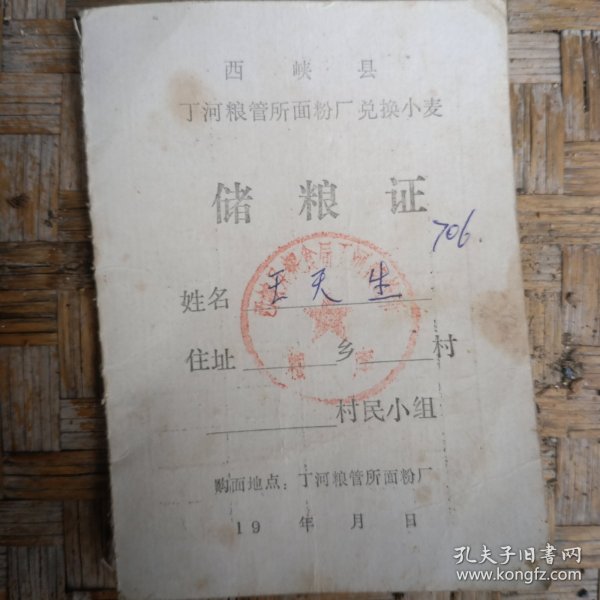 西峡县
丁河粮管所面粉厂兑换小麦
储粮证
706
姓名 王天生
住址 乡 村
村民小组
购面地点：丁河粮管所面粉厂
19 年 月 日
孔夫子旧书网
www.kongfz.com